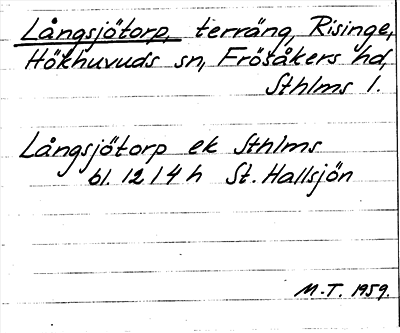 Långsjötorp, terräng, Risinge,
Hökhuvuds sn, Frösåkers hd,
Sthlms l.
Långsjötorp ek Sthlms
bl. 12 14 h St. Hallsjön
M-T. 1959.